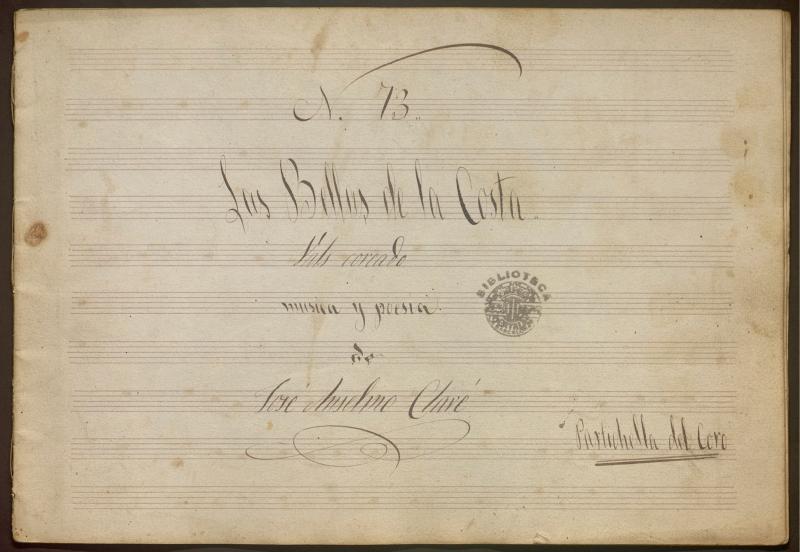 N. 73..
Las Bellas de la Costa..
Vals coreado
musica y poesia
de
José Anselmo Clavé
BIBLIOTECA
Partichella del Coro